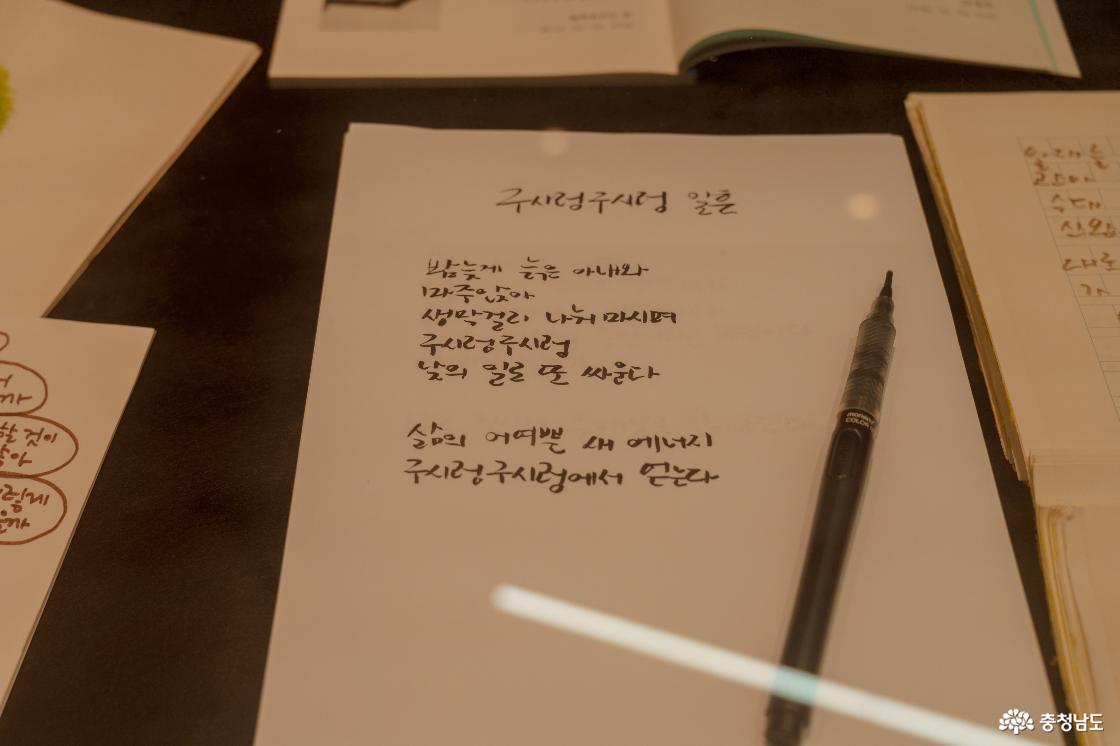 구시렁구시렁 일흔
밤늦게 늙은 아내와
마주앉아
생막걸리 나눠 마시며
구시렁구시렁
낮의 일로 또 싸운다
삶의 어여쁜 새 에너지
구시렁구시렁에서 얻는다
할 것이
COLOR
충청남도